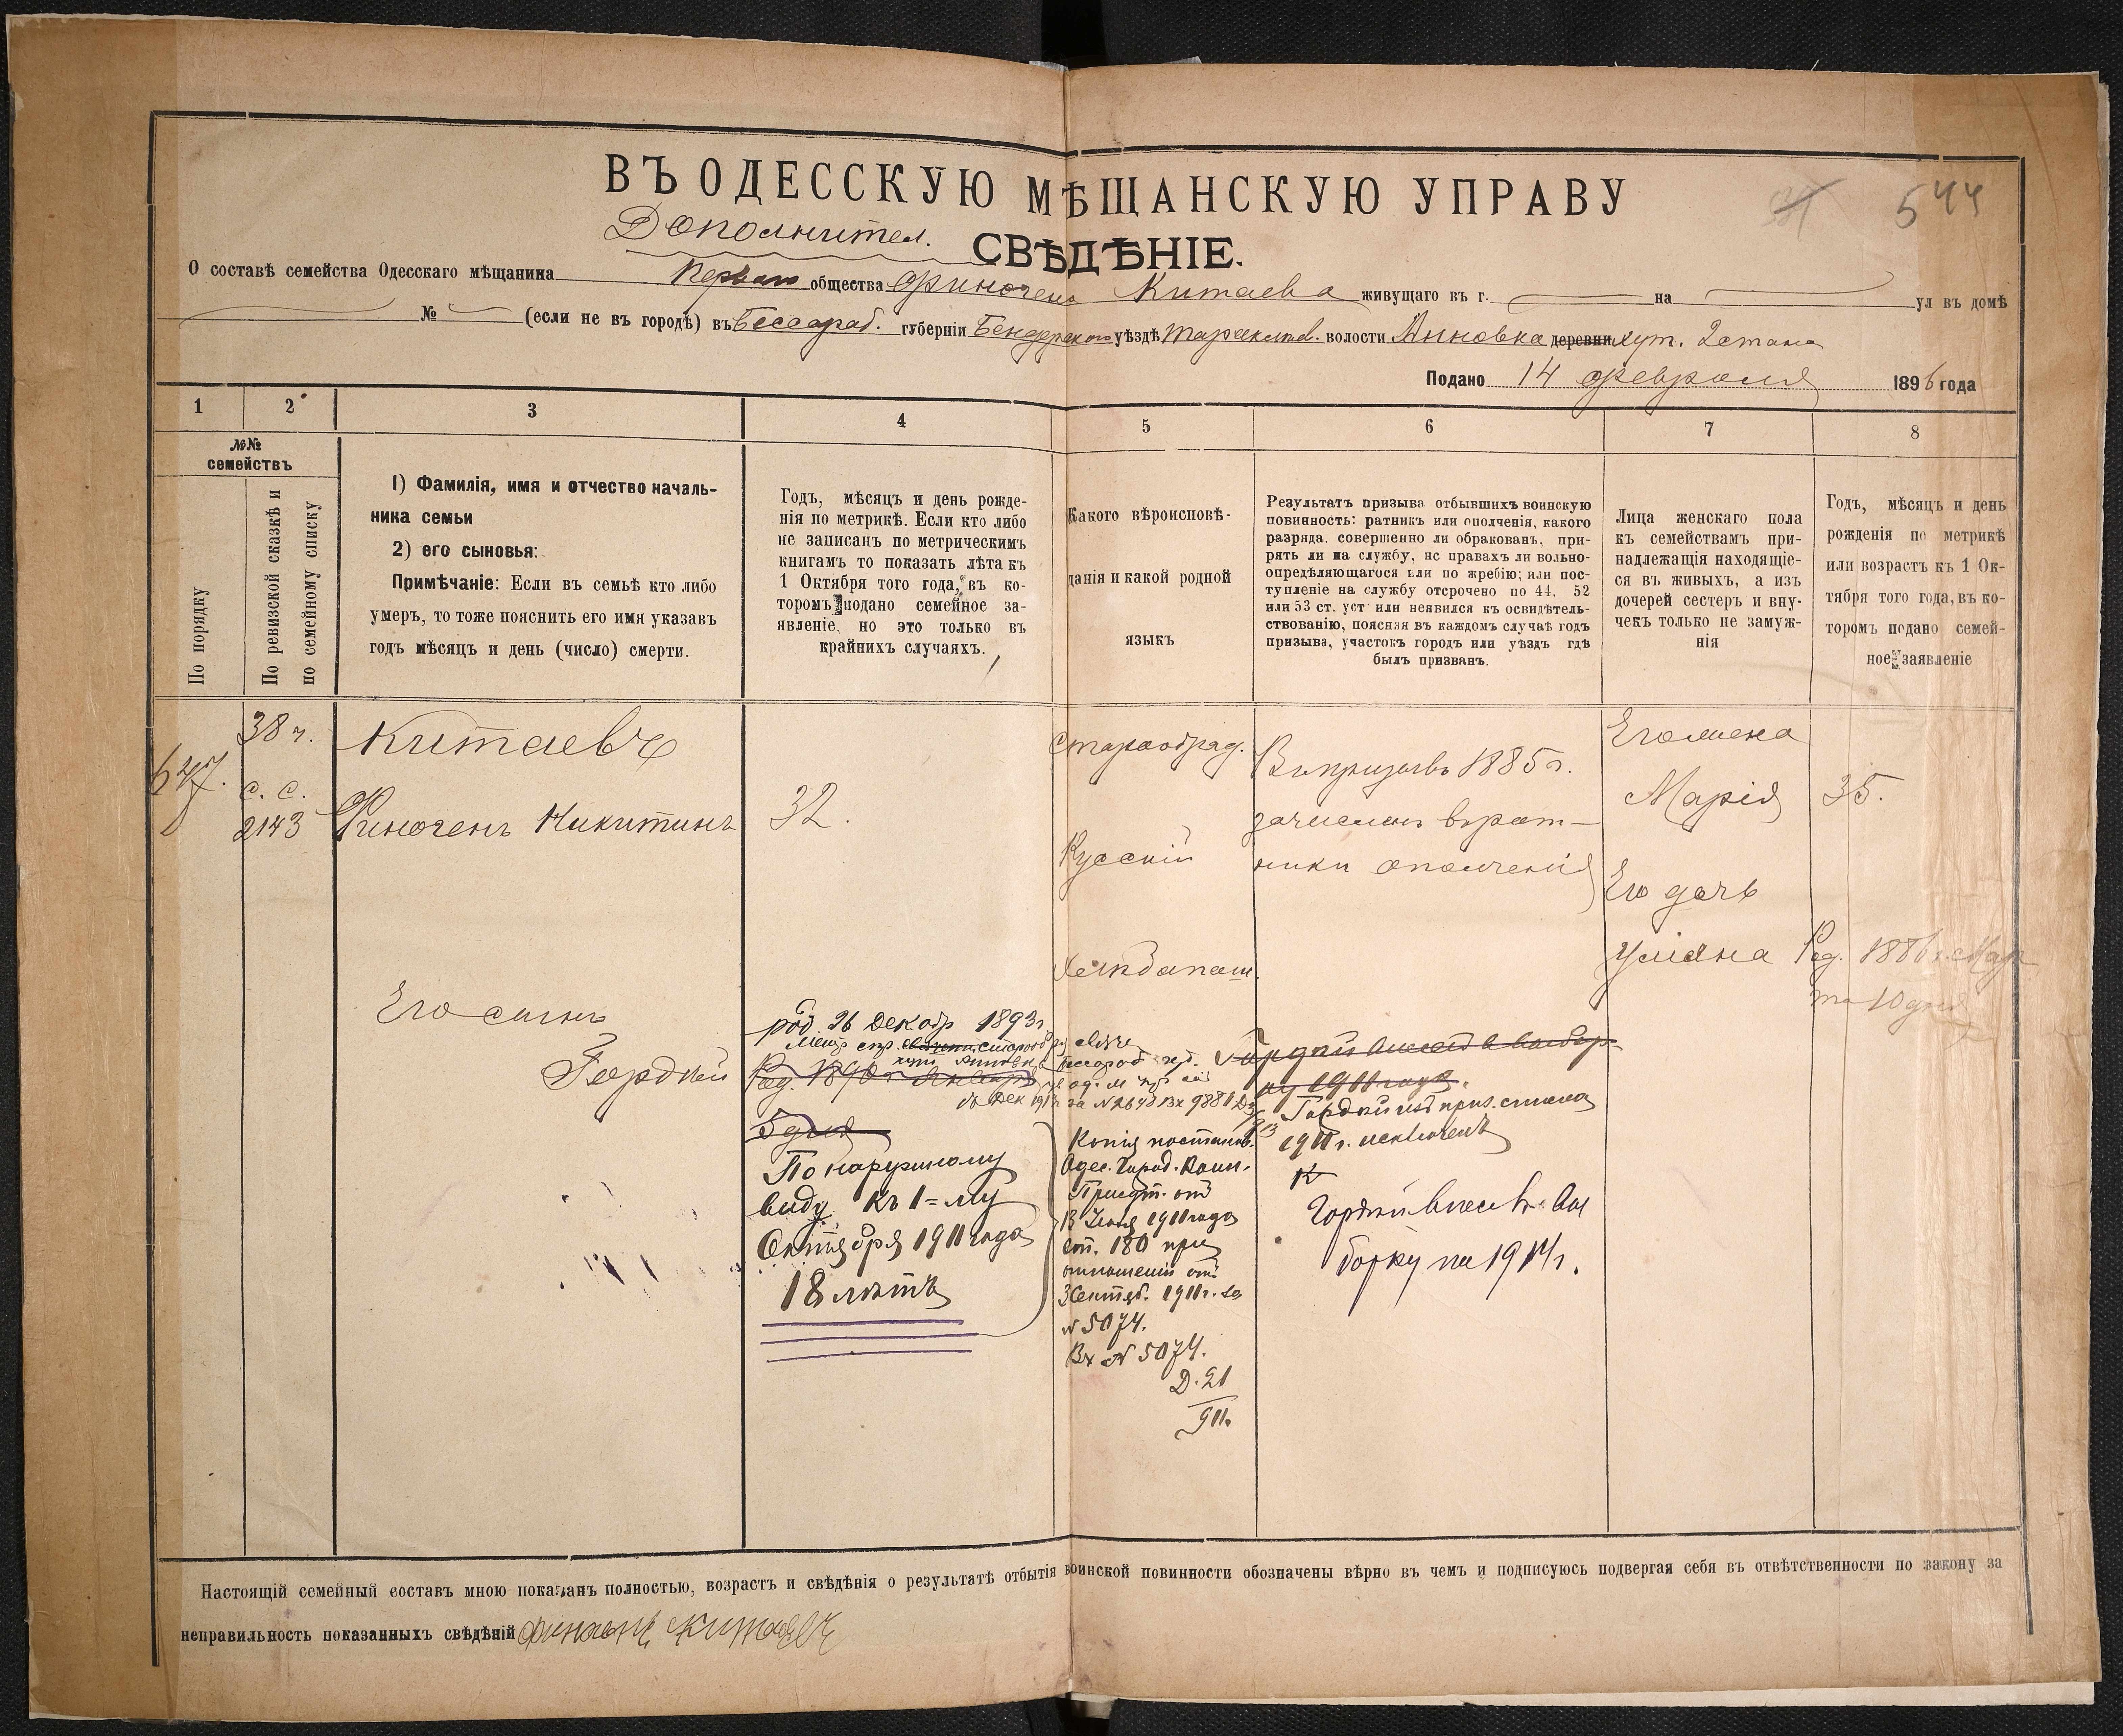 544
ВЪ ОДЕССКУЮ МѢЩАНСКУЮ УПРАВУ
Дополнител.
СВѢДѢНІЕ.
О составѣ семейства Одесскаго мѣщанина Перваго общества Финогена Китаева живущаго въ г. на ул въ домѣ
№ (если не въ городѣ) въ Бессараб. губерніи Бендерскаго уѣздѣ Тараклiев. волости Анновка деревни хут. 2 стана
Подано 14 февраля 1896 года
1 2 3 4 5 6 7 8
№№
семействъ
По порядку
По ревизской сказкѣ и
по семейному списку
1) Фамилія, имя и отчество началь-
ника семьи
2) его сыновья:
Примѣчаніе: Если въ семьѣ кто либо
умеръ, то тоже пояснить его имя указавъ
годъ мѣсяцъ и день (число) смерти.
Годъ, мѣсяцъ и день рожде-
нія по метрикѣ. Если кто либо
не записанъ по метрическимъ
книгамъ то показать лѣта къ
1 Октября того года, въ ко-
торомъ подано семейное за-
явленіе, но это только въ
крайнихъ случаяхъ.
Какого вѣроисповѣ-
данія и какой родной
языкъ
Результатъ призыва отбывшихъ воинскую
повинность: ратникъ или ополченія, какого
разряда. совершенно ли обракованъ, при-
рять ли на службу, нс правахъ ли вольно-
опредѣляющагося или по жребію; или пос-
тупленіе на службу отсрочено по 44, 52
или 53 ст. уст или неявился къ освидѣтель-
ствованію, поясняя въ каждомъ случаѣ годъ
призыва, участокъ городъ или уѣздъ гдѣ
былъ призванъ.
Лица женскаго пола
къ семействамъ при-
надлежащія находящіе-
ся въ живыхъ, а изъ
дочерей сестеръ и вну-
чекъ только не замуж-
нія
Годъ, мѣсяцъ и день
рожденія по метрикѣ
или возрастъ къ 1 Ок-
тября того года, въ ко-
торомъ подано семей-
ное заявленіе
647.
38 ч.
с. с.
2143
Китаевъ
Финогенъ Никитинъ
32.
Старообряд.
Русскій
Хлѣбопаш.
Въ призывѣ 1885 г.
зачисленъ въ рат-
ники ополченія
Его жена
Марія
35.
Его дочь
Уліана
Род. 1886 г. Мар
та 10 дня
Его сынъ
Гордѣй
род. 26 Декабр 1893 г
Род. 1890 г Января
5 дня
По наружному
виду къ 1=му
Октября 1911 года
18 лѣтъ
Копія постанов.
Одес. Город. Воин.
Присут. отъ
13 Іюня 1911 года
ст. 180 при
отношеніи отъ
3 Сентяб. 1911 г. за
№ 5074.
Вх № 5074.
Д. 21
911.
1911 года.
Гордѣй изъ приз. списка
1911 г. исключенъ
Гордѣй внесенъ въ Вы
борку на 1914 г.
Настоящій семейный составъ мною показанъ полностью, возрастъ и свѣдѣнія о результатѣ отбытія воинской повинности обозначены вѣрно въ чемъ и подписуюсь подвергая себя въ отвѣтственности по закону за
неправильность показанныхъ свѣдѣній Финогенъ Китаевъ